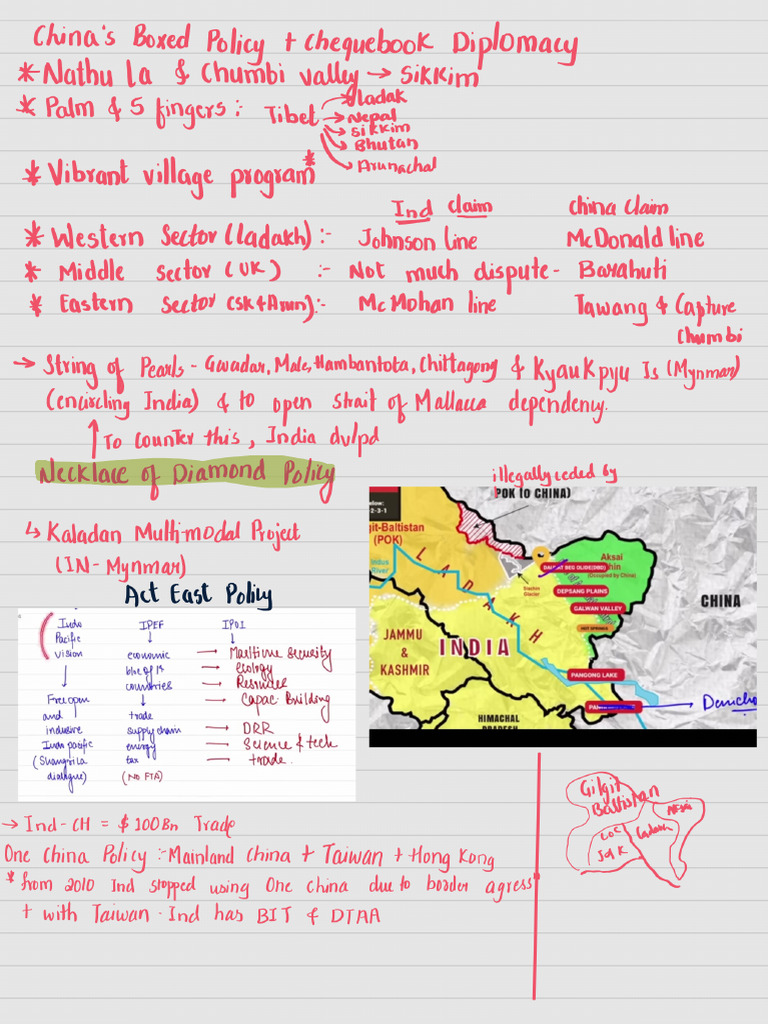 China's Boxed Policy + Chequebook Diplomacy
* Nathu La & Chumbi valley → Sikkim
* Palm & 5 fingers :- Tibet → ladak
→ Nepal
→ Sikkim
→ Bhutan
→ Arunachal
* Vibrant village program *
Ind claim China Claim
* Western Sector (ladakh) :- Johnson line McDonald line
* Middle Sector (UK) :- Not much dispute - Barahuti
* Eastern Sector (SK + Arun) :- McMohan line Tawang & Capture
Chumbi
→ String of Pearls - Gwadar, Male, Hambantota, Chittagong & Kyaukpyu Is (Mynmar)
(encircling India) & to open strait of Mallacca dependency.
↑ To counter this, India dvlpd
Necklace of Diamond Policy
↳ Kaladan Multi-modal Project
(IN- Mynmar)
Act East Policy
Indo
Pacific
vision
↓
Free open
and
inclusive
Indo pacific
(Shangrila
dialogue)
IPEF
↓
economic
countries
↓
trade
supply chain
energy
tax
(NO FTA)
IPOI
↓
→ Maritime security
→ ecology
→ Resources
→ Capac. Building
→ DRR
→ Science & tech
→ trade.
illegally ceded by
POK TO CHINA)
2-3-1
git-Baltistan
(POK)
Indus
River
LADAKH
Siachin
Glacier
Aksai
hin
(Occupied by China)
DAULAT BEG OLDIE(DBD)
DEPSANG PLAINS
GALWAN VALLEY
HOT SPRINGS
CHINA
JAMMU
&
KASHMIR
INDIA
PANGONG LAKE
→ Demcho
HIMACHAL
PRADESH
→ Ind-CH = $ 100 Bn Trade
One China Policy :- Mainland China + Taiwan + Hong Kong
* from 2010 Ind stopped using One China due to border agress
+ with Taiwan · Ind has BIT & DTAA
Gilgit
Baltistan
Aksai
LOC
Ladakh
J&K